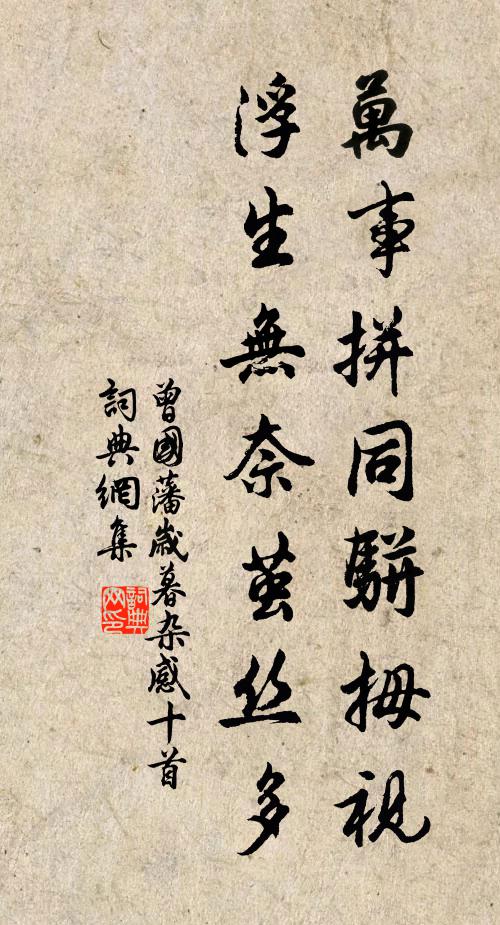 萬事拼同駢拇視
浮生無奈茧丝多
曾國藩歲暮杂感十首
詞典網集
詞典网印